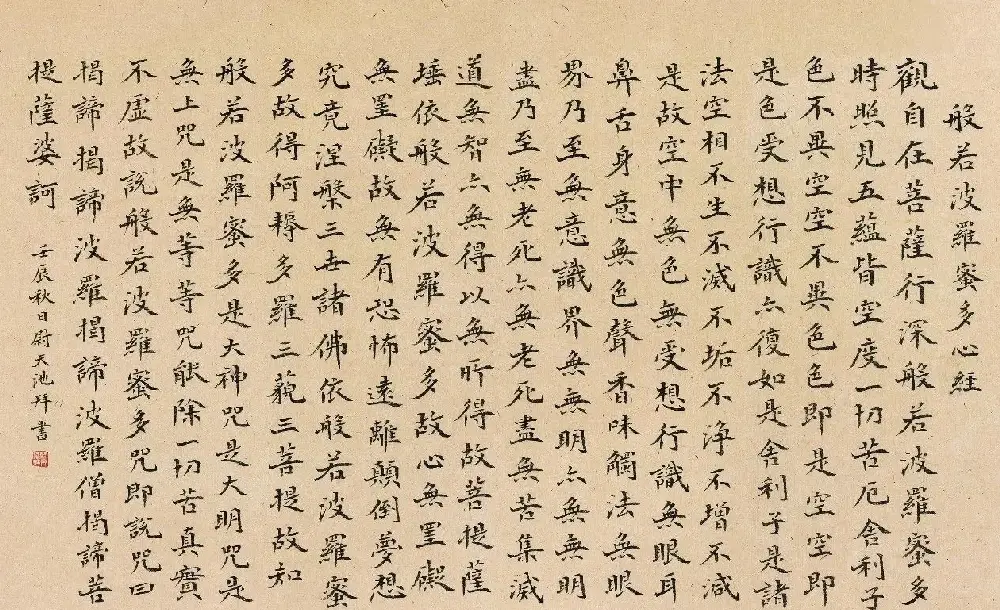 般若波羅蜜多心經
觀自在菩薩行深般若波羅蜜多
時照見五蘊皆空度一切苦厄舍利子
色不異空空不異色色即是空空即
是色受想行識亦復如是舍利子是諸
法空相不生不滅不垢不淨不增不減
是故空中無色無受想行識無眼耳
鼻舌身意無色聲香味觸法無眼
界乃至無意識界無無明亦無無明
盡乃至無老死亦無老死盡無苦集滅
道無智亦無得以無所得故菩提薩
埵依般若波羅蜜多故心無罣礙
無罣礙故無有恐怖遠離顛倒夢想
究竟涅槃三世諸佛依般若波羅蜜
多故得阿耨多羅三藐三菩提故知
般若波羅蜜多是大神咒是大明咒是
無上咒是無等等咒能除一切苦真實
不虛故說般若波羅蜜多咒即說咒曰
揭諦揭諦波羅揭諦波羅僧揭諦菩
提薩婆訶
壬辰秋日尉天池拜書